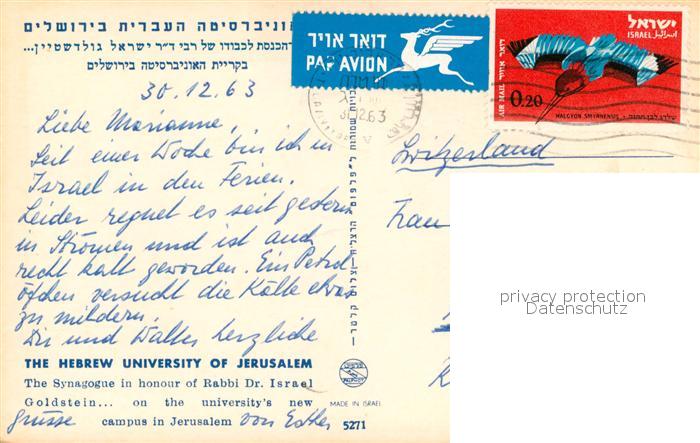 האוניברסיטה העברית בירושלים
בית-הכנסת לכבודו של רבי ד״ר ישראל גולדשטיין...
בקריית האוניברסיטה בירושלים
דואר אויר
PAR AVION
ישראל
ISRAEL اسرائيل
דואר אויר AIR MAIL
0.20
HALCYON SMYRNENSIS
שלדג לבן-חזה
30.12.63
30.12.63
Liebe Marianne,
Seit einer Woche bin ich in
Israel in den Ferien.
Leider regnet es seit gestern
in Strömen und ist auch
recht kalt geworden. Ein Petrol-
öfchen versucht die Kälte etwas
zu mildern.
Dir und Walter herzliche
Grüsse von Esther
Switzerland
Frau
THE HEBREW UNIVERSITY OF JERUSALEM
The Synagogue in honour of Rabbi Dr. Israel
Goldstein... on the university's new
campus in Jerusalem
MADE IN ISRAEL
5271
privacy protection
Datenschutz